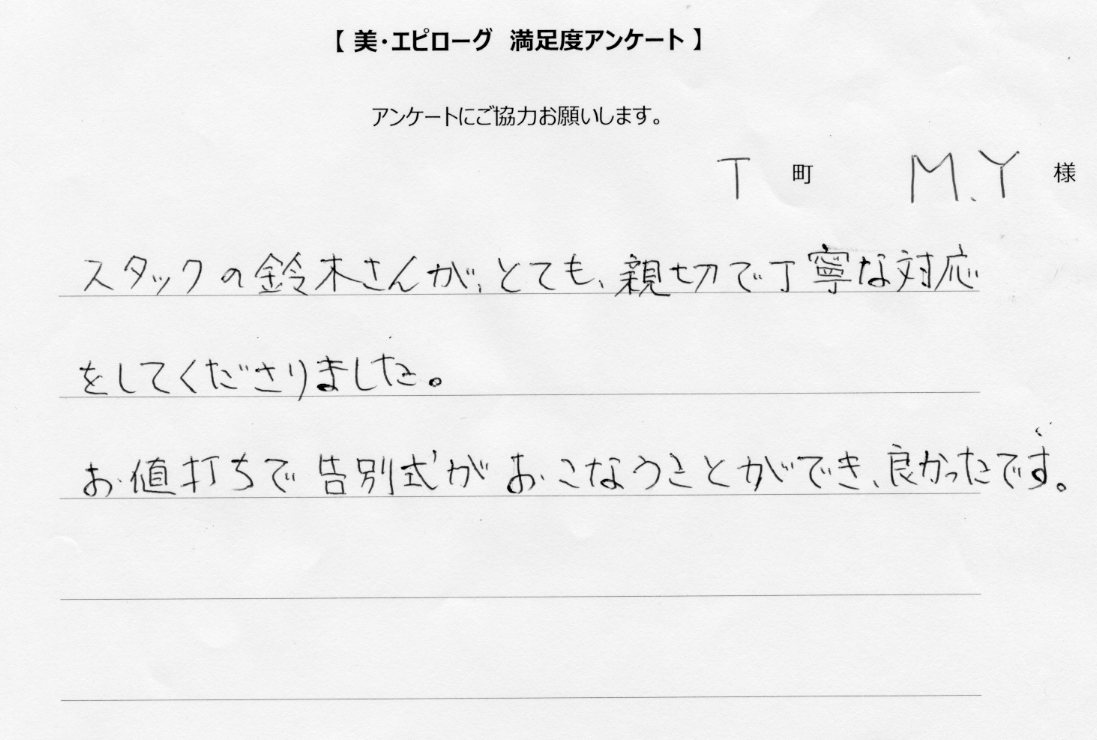 【 美・エピローグ 満足度アンケート 】
アンケートにご協力お願いします。
T 町 M.Y 様
スタックの鈴木さんが、とても、親切で丁寧な対応
をしてくださりました。
お値打ちで告別式がおこなうことができ、良かったです。